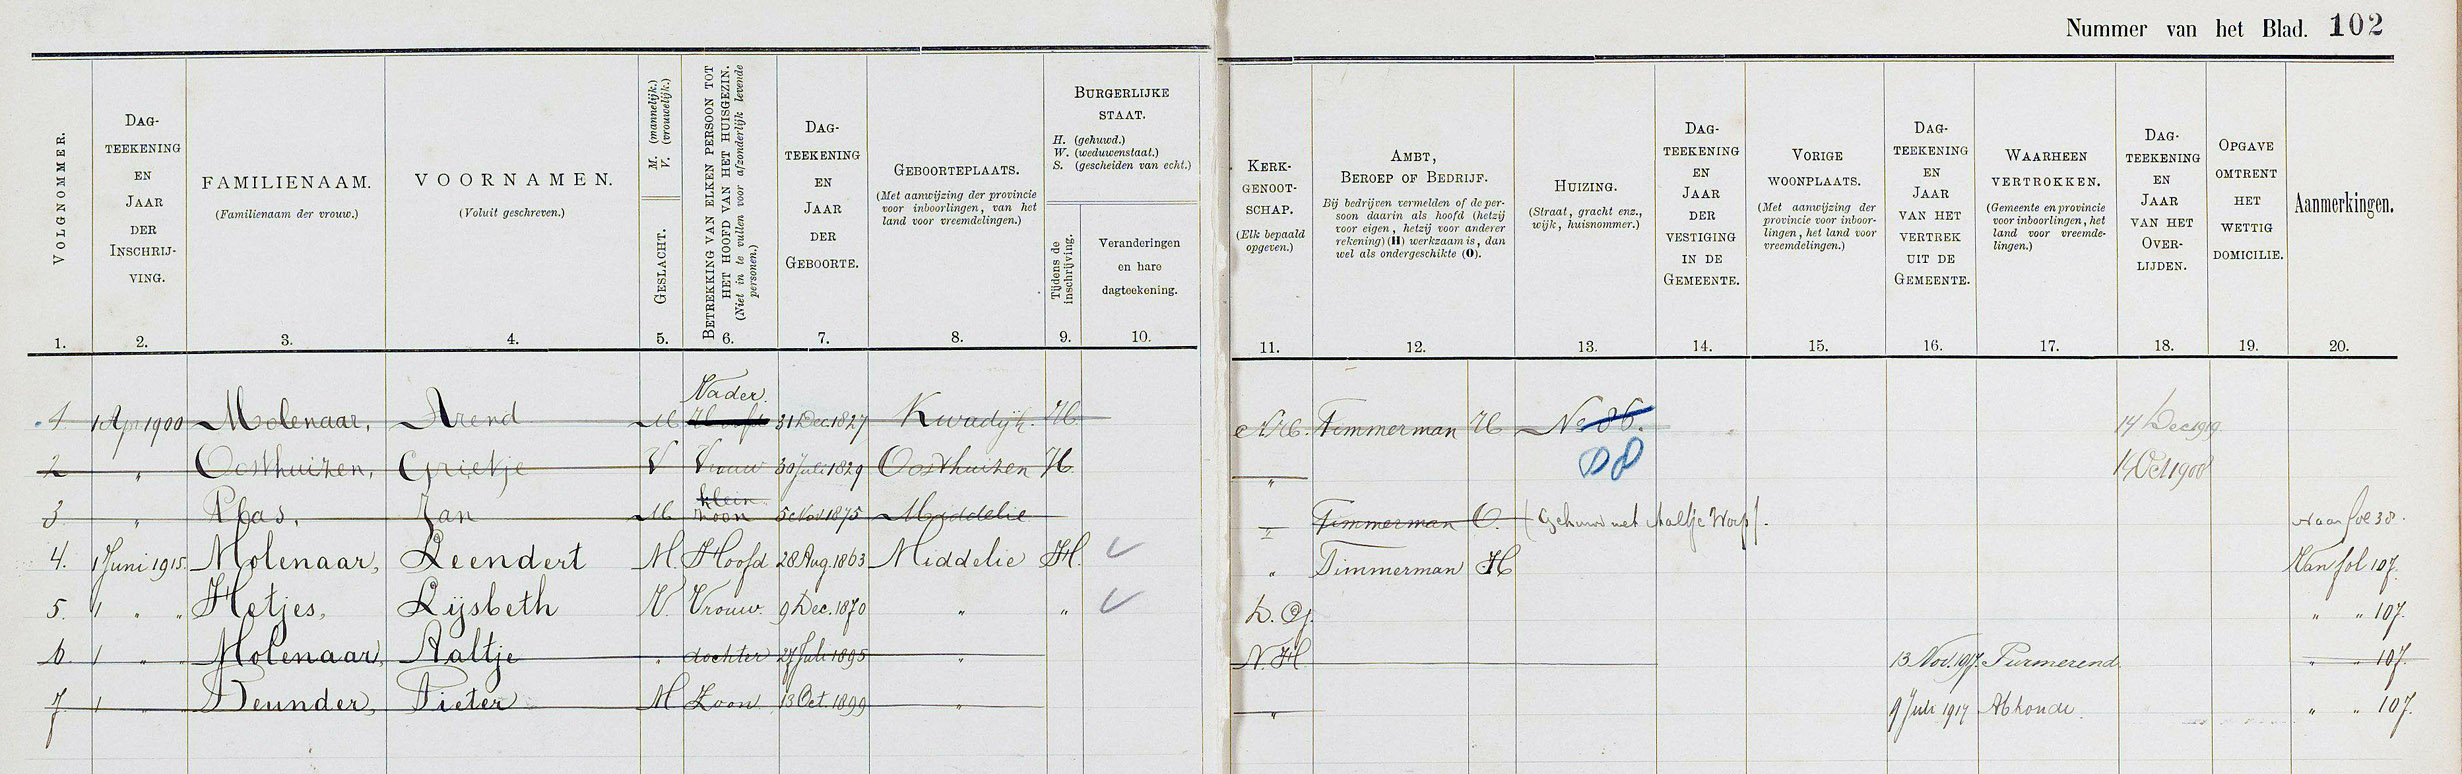 Nummer van het Blad. 102
VOLGNOMMER.
DAG-
TEEKENING
EN
JAAR
DER
INSCHRIJ-
VING.
FAMILIENAAM.
(Familienaam der vrouw.)
VOORNAMEN.
(Voluit geschreven.)
M. (mannelijk.)
V. (vrouwelijk.)
GESLACHT.
BETREKKING VAN ELKEN PERSOON TOT
HET HOOFD VAN HET HUISGEZIN.
(Niet in te vullen voor afzonderlijk levende
personen.)
DAG-
TEEKENING
EN
JAAR
DER
GEBOORTE.
GEBOORTEPLAATS.
(Met aanwijzing der provincie
voor inboorlingen, van het
land voor vreemdelingen.)
BURGERLIJKE
STAAT.
H. (gehuwd.)
W. (weduwenstaat.)
S. (gescheiden van echt.)
Tijdens de
inschrijving.
Veranderingen
en hare
dagteekening.
KERK-
GENOOT-
SCHAP.
(Elk bepaald
opgeven.)
AMBT,
BEROEP OF BEDRIJF.
Bij bedrijven vermelden of de per-
soon daarin als hoofd (hetzij
voor eigen, hetzij voor anderer
rekening) (H) werkzaam is, dan
wel als ondergeschikte (O).
HUIZING.
(Straat, gracht enz.,
wijk, huisnommer.)
DAG-
TEEKENING
EN
JAAR
DER
VESTIGING
IN DE
GEMEENTE.
VORIGE
WOONPLAATS.
(Met aanwijzing der
provincie voor inboor-
lingen, het land voor
vreemdelingen.)
DAG-
TEEKENING
EN
JAAR
VAN HET
VERTREK
UIT DE
GEMEENTE.
WAARHEEN
VERTROKKEN.
(Gemeente en provincie
voor inboorlingen, het
land voor vreemde-
lingen.)
DAG-
TEEKENING
EN
JAAR
VAN HET
OVER-
LIJDEN.
OPGAVE
OMTRENT
HET
WETTIG
DOMICILIE.
Aanmerkingen.
1. 2. 3. 4. 5. 6. 7. 8. 9. 10. 11. 12. 13. 14. 15. 16. 17. 18. 19. 20.
Vader.
1. 1 Apr 1900 Molenaar, Arend M Hoofd 31 Dec 1827 Kwadijk. H. N.H. Timmerman H No 86. 14 Dec 1919
D 8
2 " Oosthuizen, Grietje V Vrouw 30 Juli 1829 Oosthuizen H. " Oct 1900
klein
3 " Plas, Jan M zoon 5 Nov 1875 Middelie " Timmerman O. (Gehuwd met Aaltje Worp). Naar fol 38.
4. 1 Juni 1915. Molenaar, Leendert M. Hoofd 28 Aug. 1863 Middelie H. " Timmerman H Van fol 107.
5. 1 " " Hetjes, Lijsbeth V. Vrouw. 9 Dec. 1870 " " D. Gz. " " 107.
6. 1 " " Molenaar, Aaltje " dochter 27 Juli 1895 " N.H. 13 Nov. 1917. Purmerend " " 107.
7. 1 " " Teunder, Pieter M Zoon 13 Oct. 1899 " " 9 Juli 1917 Abkoude. " " 107.